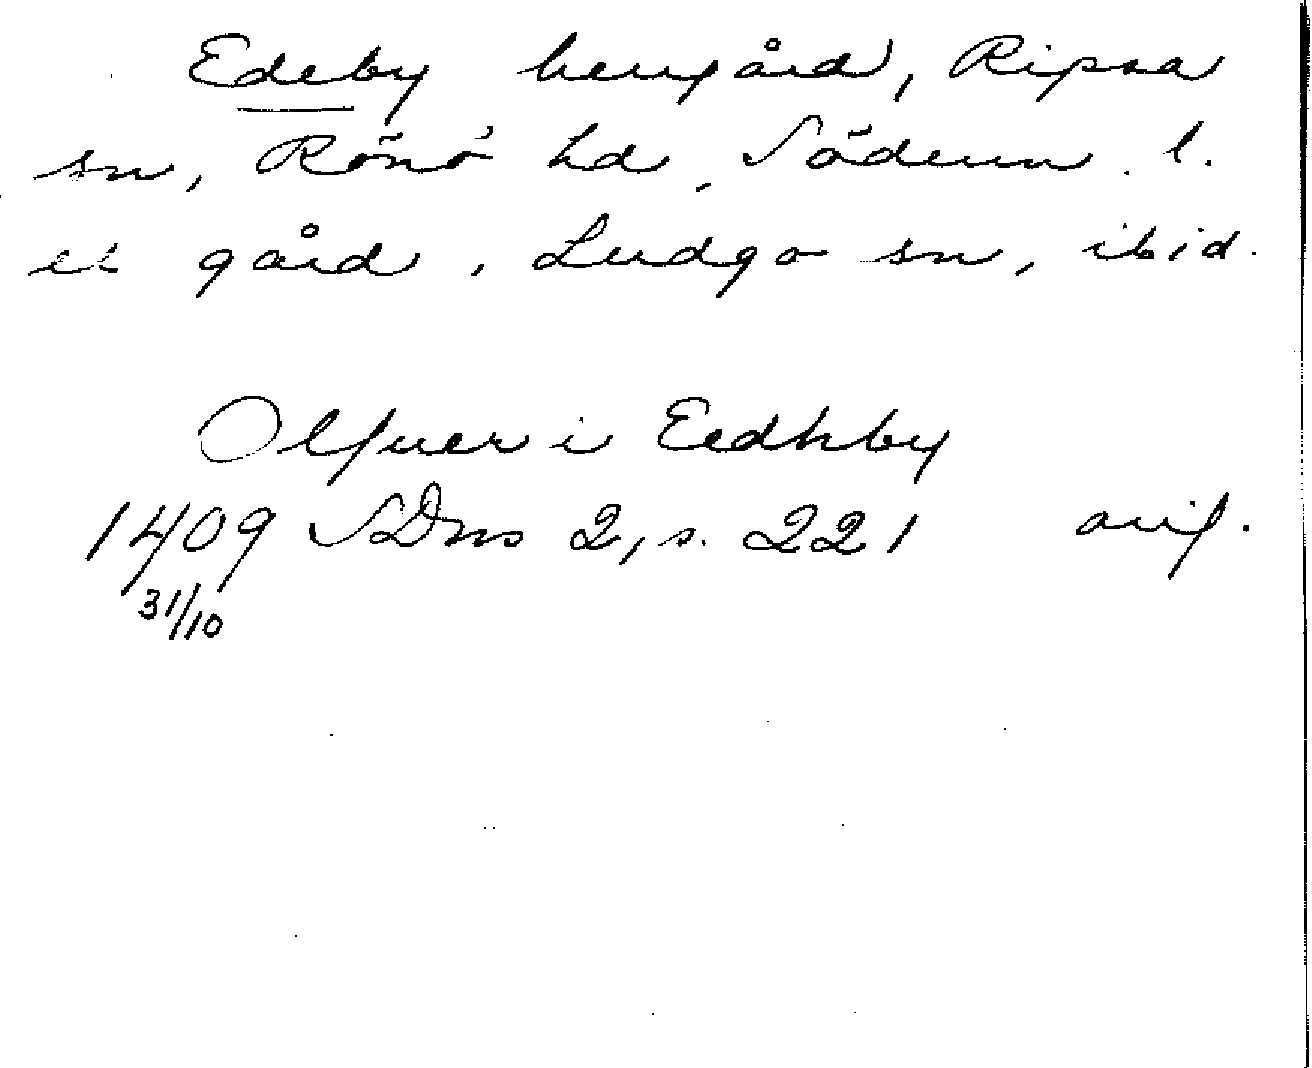 Edeby herrgård, Ripsa
sn, Rönö hd, Söderm. l.
et gård, Ludgo sn, ibid.
Olfuer i Eedhby
1409 SDns 2, s. 221 avif.
31/10